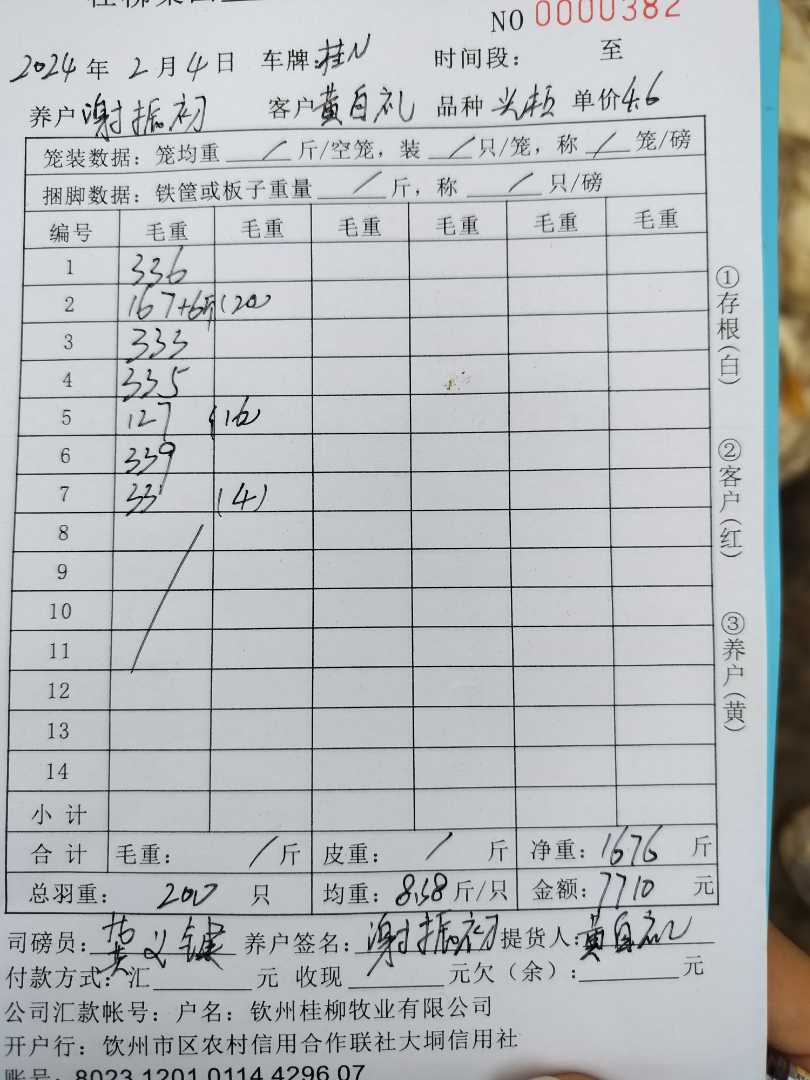 NO 0000382
2024年 2月4日 车牌:桂N 时间段: 至
养户 谢振初 客户 黄自礼 品种 单价4.6
笼装数据: 笼均重 / 斤/空笼, 装 / 只/笼, 称 / 笼/磅
捆脚数据: 铁筐或板子重量 / 斤, 称 / 只/磅
编号 毛重 毛重 毛重 毛重 毛重 毛重
1 336
2 167+6斤(20
3 333
4 335
5 127 (16)
6 339
7 33 (4)
8
9
10
11
12
13
14
小计
合计 毛重: / 斤 皮重: / 斤 净重: 1676 斤
总羽重: 200 只 均重: 8.38 斤/只 金额: 7710 元
司磅员: 黄义键 养户签名: 谢振初 提货人: 黄自礼
付款方式: 汇 元 收现 元欠(余): 元
公司汇款帐号: 户名: 钦州桂柳牧业有限公司
开户行: 钦州市区农村信用合作联社大垌信用社
账号: 8023 1201 0114 4296 07
①存根(白)
②客户(红)
③养户(黄)